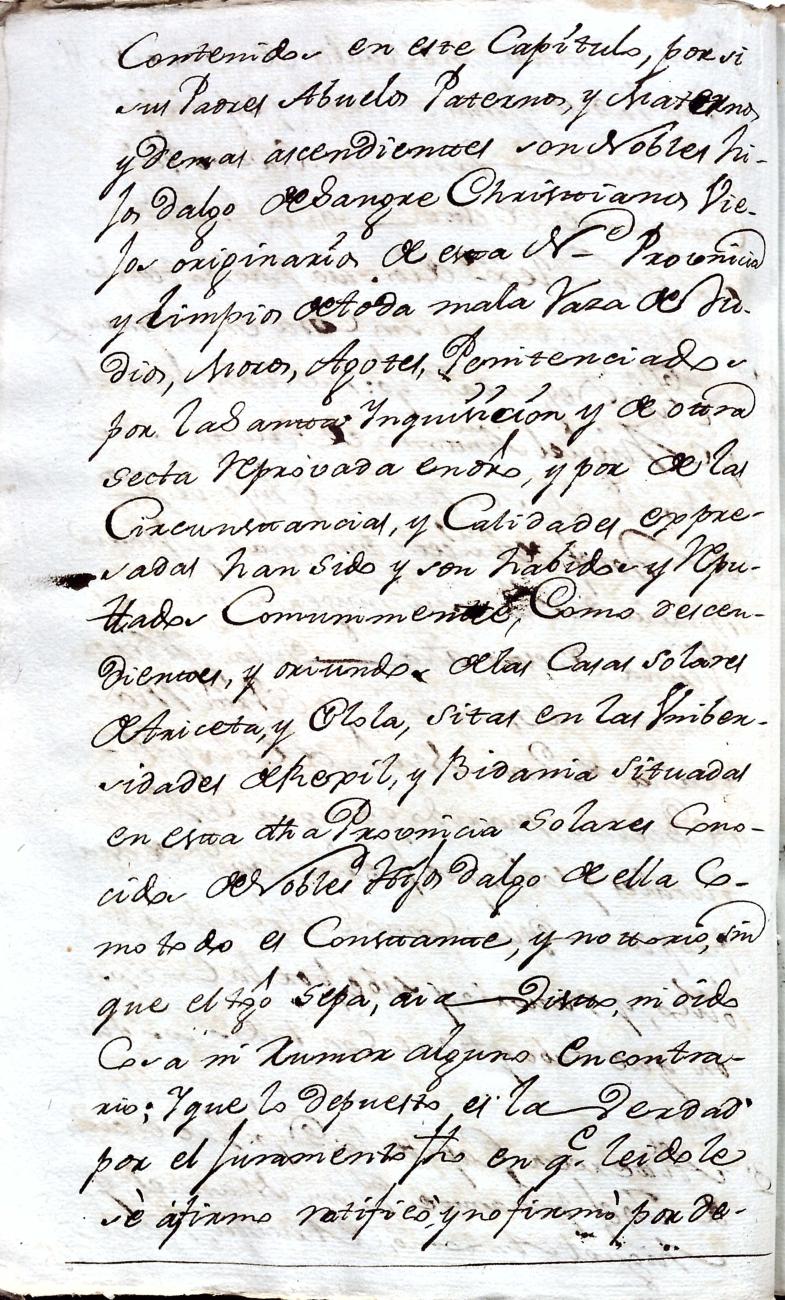 Contenidos en este Capítulo, por si
sus Padres Abuelos Paternos, y Maternos,
y demas ascendienttes son Nobles hi-
jos dalgo de Sangre Christtianos Vie-
jos originarios de esta N.e Provincia
y Limpios de toda mala Raza de Ju-
dios, Moros, Agotes, Penitenciados
por la Santta Inquisicion y de ottra
secta Reprovada en dro, y por de las
Circunsttancias, y Calidades expre-
sadas han sido y son habidos y Repu-
ttados Comunmentte, Como descen-
dienttes, y oriundos de las Casas solares
de Ariceta, y Olola, sitas en las Uniber-
sidades de Rexil, y Bidania situadas
en estta dha Provincia Solares Cono-
cidos de Nobles Hijos dalgo de ella Co-
mo todo es Consttantte, y nottorio, sin
que el tgo sepa, aia Vistto, ni oido
Cosa ni Rumor alguno en contra-
rio; Y que lo depuesto es la Verdad
por el Juramento fho en q.e leidole
sè afirmo ratificò, y no firmò por de-